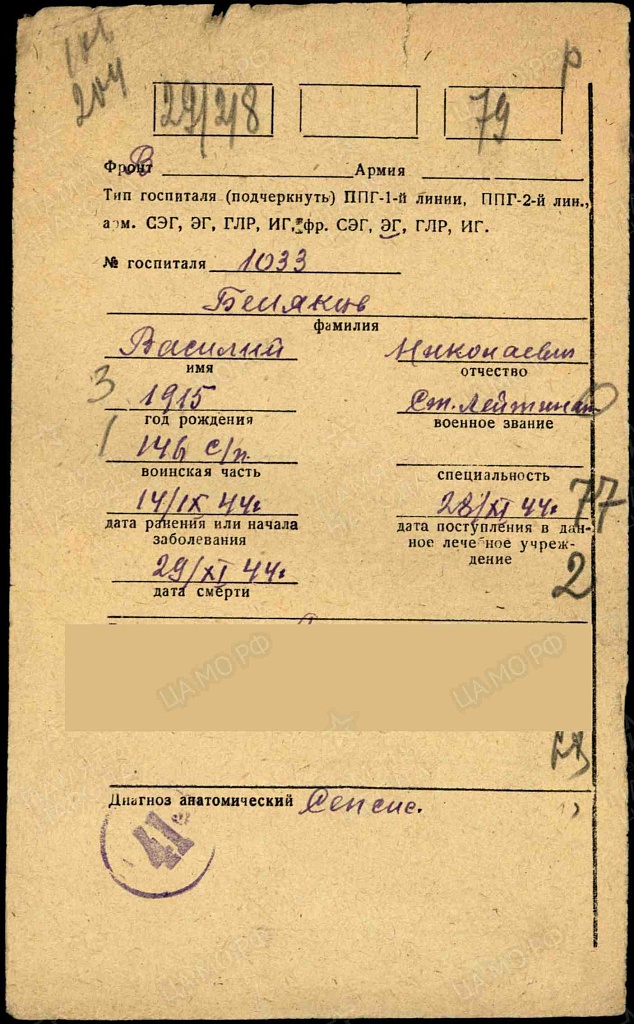 204
29/2/8
79
р
Фронт Армия
Тип госпиталя (подчеркнуть) ППГ-1-й линии, ППГ-2-й лин.,
арм. СЭГ, ЭГ, ГЛР, ИГ, фр. СЭГ, ЭГ, ГЛР, ИГ.
№ госпиталя 1033
Беляков
фамилия
Василий Николаевич
имя отчество
3 1915 Ст. Лейтинант
год рождения военное звание
1 146 с/п.
воинская часть специальность
14/IX 44г. 28/XI 44г. 77
дата ранения или начала дата поступления в дан-
заболевания ное лечебное учреж-
дение
29/XI 44г. 2
дата смерти
ЦАМО РФ ЦАМО РФ
Диагноз анатомический Сепсис.
41